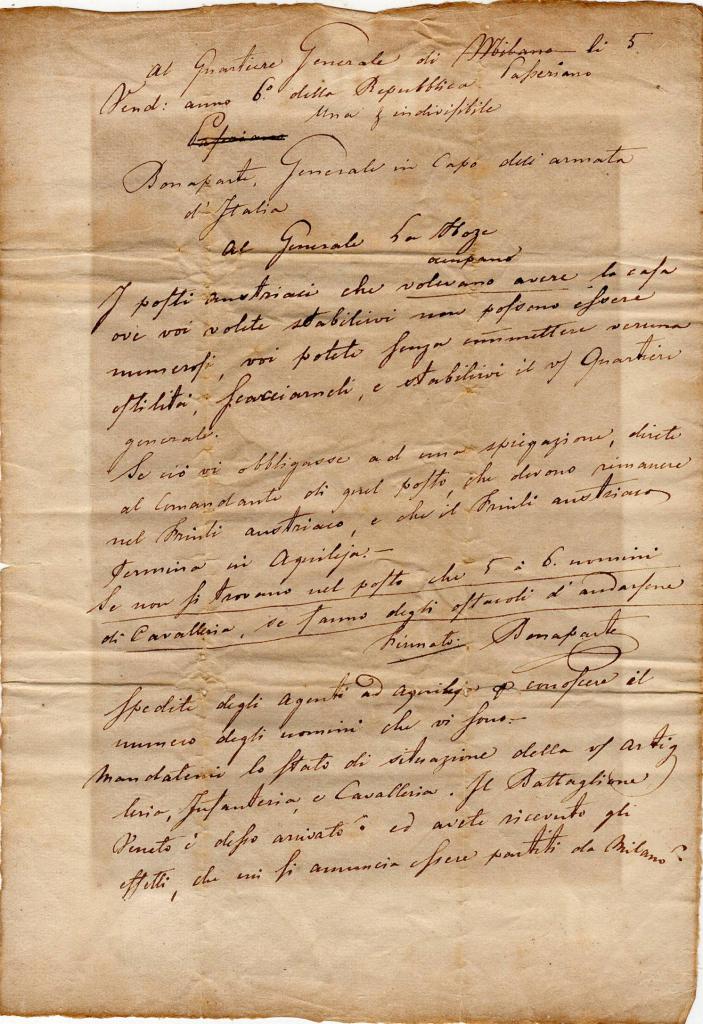 Al Quartiere Generale di Milano li 5.
Vend: anno 6º. della Repubblica Passeriano
Una & indivisibile
Bonaparte, Generale in Capo dell armata
d'Italia
Al Generale La Hoze
occupano
I posti austriaci che volevano avere la casa
ove voi volete stabilirvi non possono essere
numerosi, voi potete senza commettere veruna
ostilità, scacciarneli, e stabilirvi il vº Quartiere
generale.
Se ciò vi obbligasse ad una spiegazione, direte
al Comandante di quel posto, che devono rimanere
nel Friuli austriaco, e che il Friuli austriaco
termina in Aquileja.—
Se non si trovano nel posto che 5 à 6. uomini
di Cavalleria, se fanno degli ostacoli d'andarsene
Firmato: Bonaparte
Spedite degli Agenti ad Aquileja conoscere il
numero degli uomini che vi sono.—
Mandatemi lo stato di situazione della vº Artig
lieria, Infanteria, e Cavalleria. Il Battaglione
Veneto è desso arrivato? ed avete ricevuto gli
effetti, che mi si annuncia essere partiti da Milano?